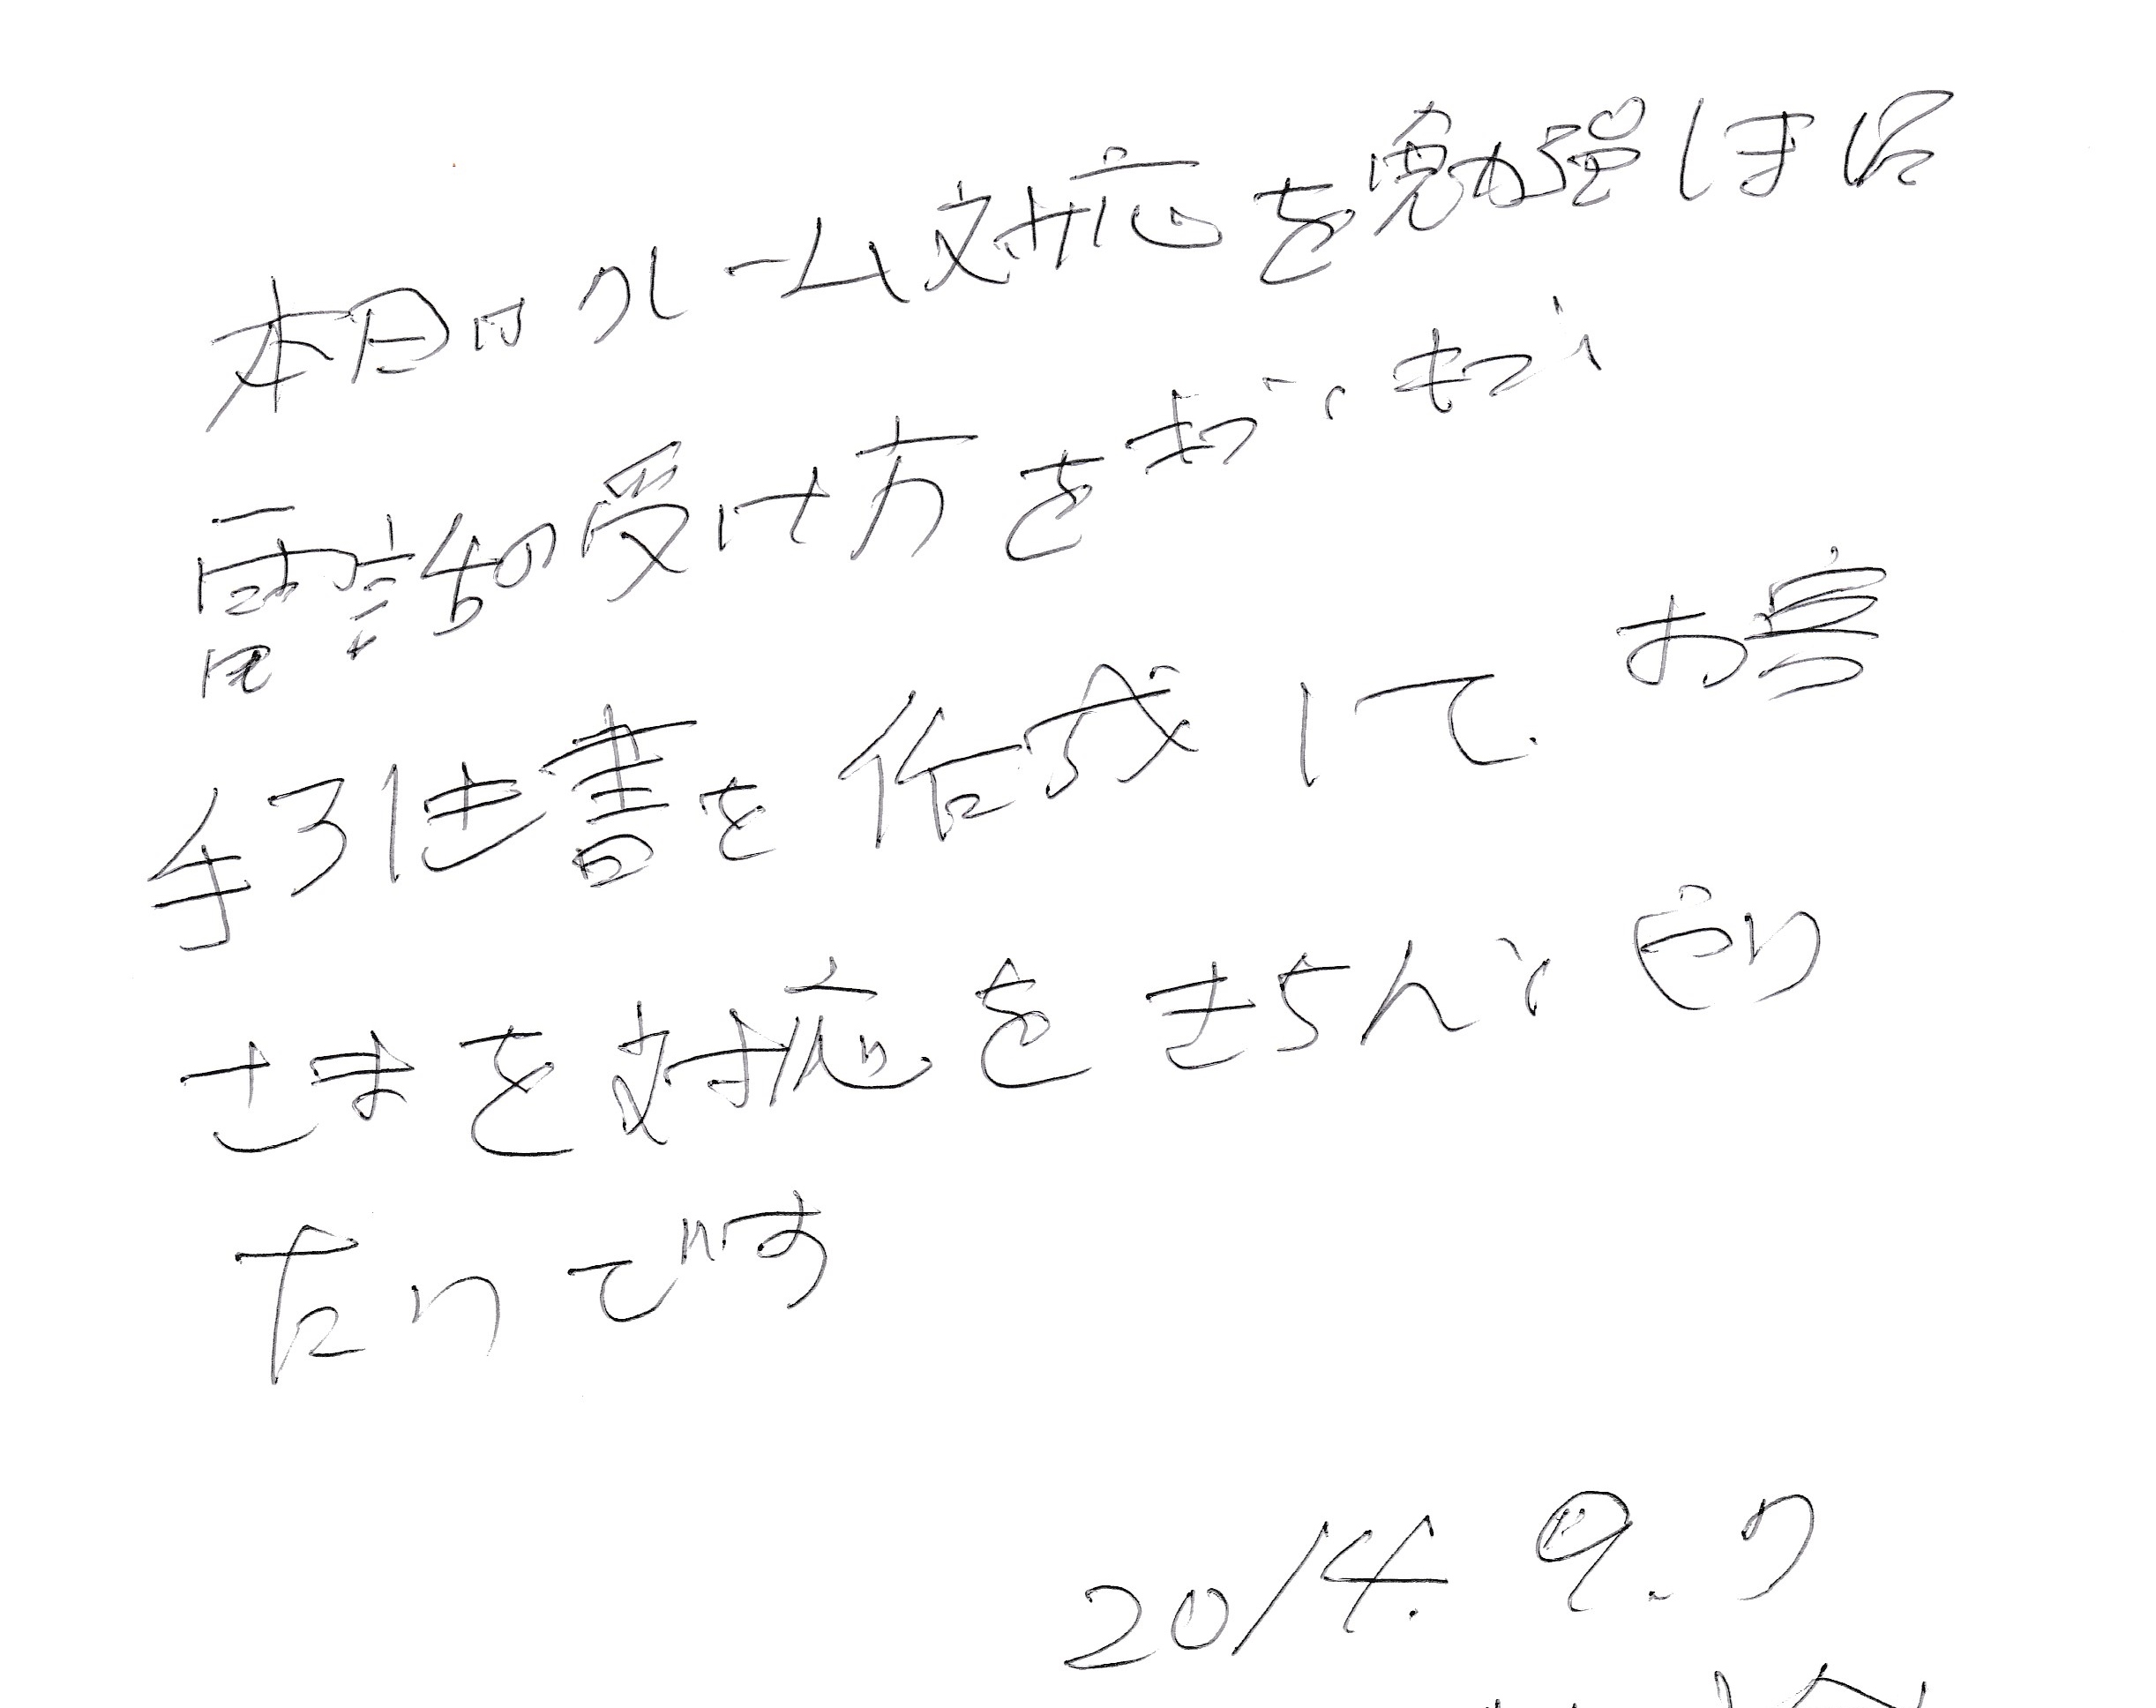 本日はルーム対応を勉強しました
電話の受け方を
手引き書を作成して、お客
さまを対応をきちんと守り
たいです
2014.9.7